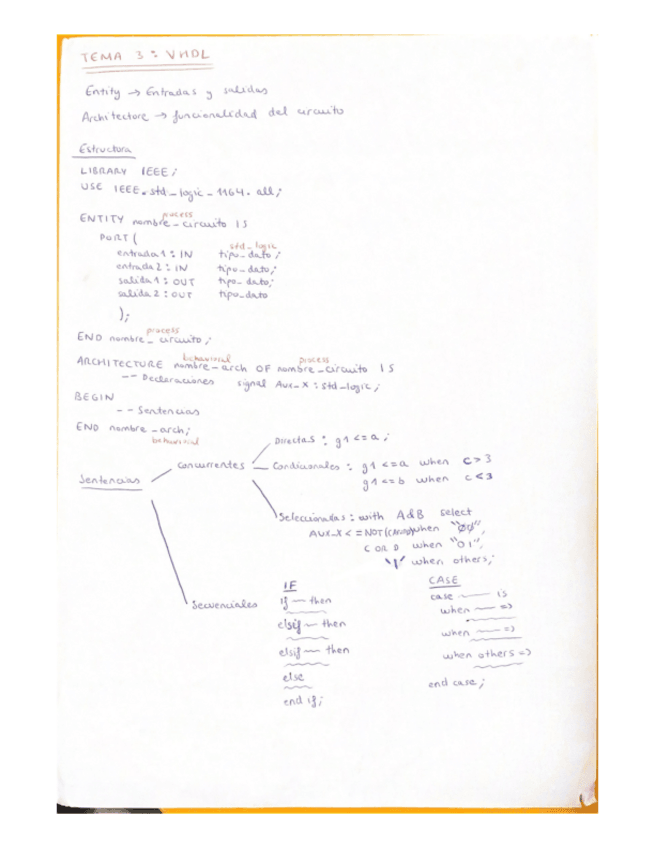 TEMA 3: VHDL
Entity → Entradas y salidas
Architecture → funcionalidad del circuito
Estructura
LIBRARY IEEE;
USE IEEE.std_logic_1164.all;
process
ENTITY nombre_circuito IS
PORT (
std_logic
entrada 1 : IN tipo_dato;
entrada 2 : IN tipo_dato;
salida 1 : OUT tipo_dato;
salida 2 : OUT tipo_dato
);
process
END nombre_circuito;
behavioral process
ARCHITECTURE nombre_arch OF nombre_circuito IS
-- Declaraciones signal Aux_X : std_logic;
BEGIN
-- Sentencias
END nombre_arch;
behavioral
Sentencias
Concurrentes
Directas : g1 <= a;
Condicionales : g1 <= a when c > 3
g1 <= b when c < 3
Seleccionadas : with A&B select
AUX_X <= NOT(C AND D) when "00",
C OR D when "01",
'1' when others;
Secuenciales
IF
if — then
elsif — then
elsif — then
else
end if;
CASE
case — is
when — =>
when — =>
when others =>
end case;